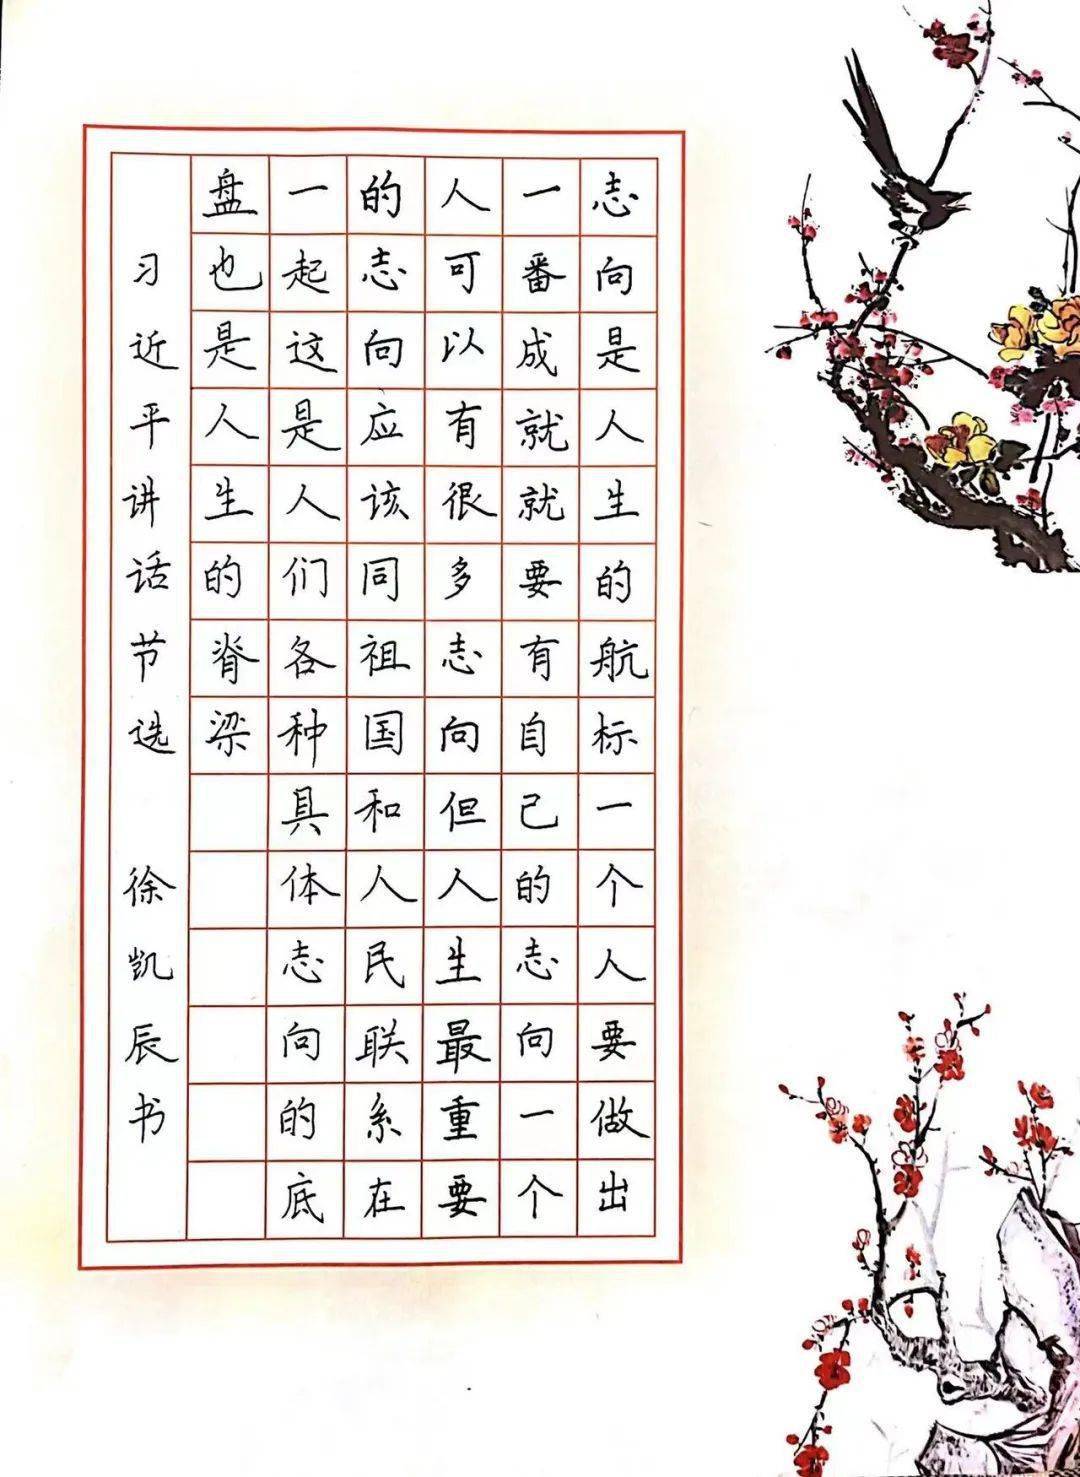 志向是人生的航标一个人要做出
一番成就就要有自己的志向一个
人可以有很多志向但人生最重要
的志向应该同祖国和人民联系在
一起这是人们各种具体志向的底
盘也是人生的脊梁
习近平讲话节选 徐凯辰书